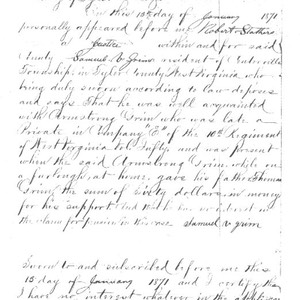 On this 18th day of January 1871
personally appeared before me Robert Stathers
a Justice within and for said
County Samuel V. Grim resident of Centerville
Township in Tyler County West Virginia who
being duly sworn according to law deposes
and says That he was well acquainted
with Armstrong Grim who was late a
Private in Company "E" of the 10th Regiment
of West Virginia Vol Inft and was present
when the said Armstrong Grim while on
a furlough at home gave his father Thomas
Grim the sum of sixty dollars in money
for his support and that he is not interested in
the claim for pension in this case Samuel V. Grim
Sworn to and subscribed before me this
18 day of January 1871 and I certify that
I have no interest whatever in the